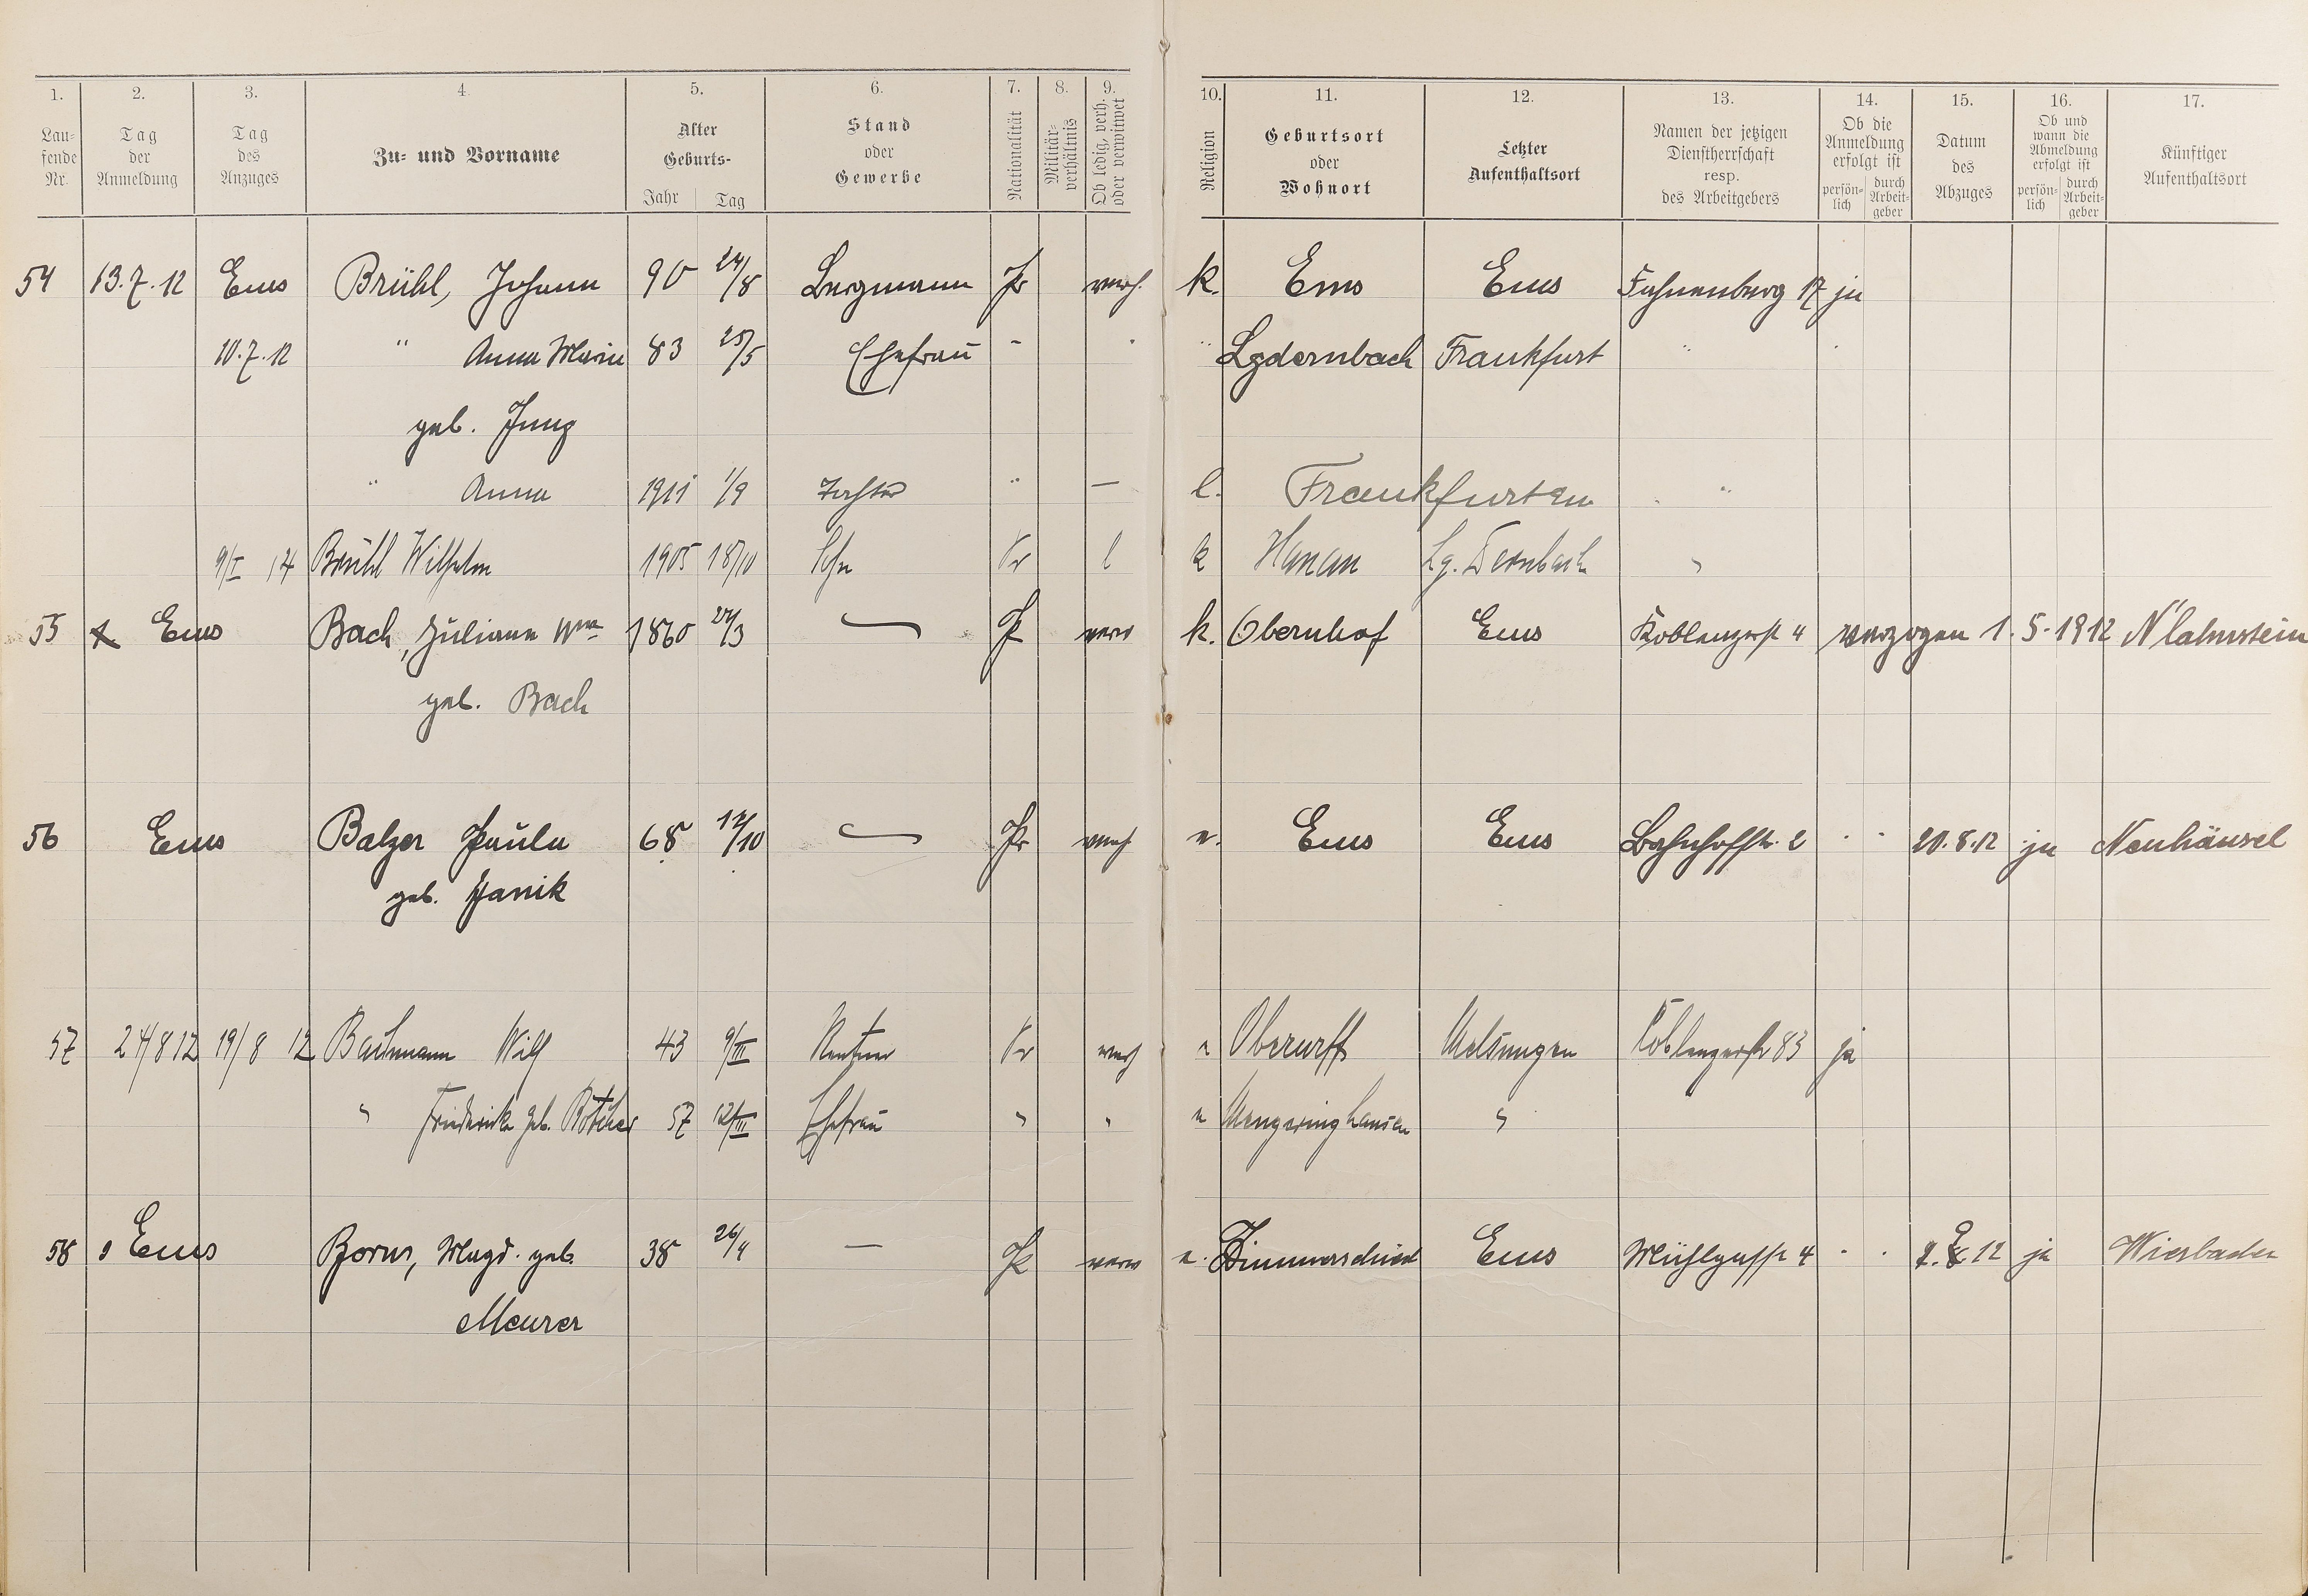 1. 2. 3. 4. 5. 6. 7. 8. 9. 10. 11. 12. 13. 14. 15. 16. 17.
Lau-
fende
Nr.
Tag
der
Anmeldung
Tag
des
Anzuges
Zu- und Vorname
Alter
Geburts-
Jahr Tag
Stand
oder
Gewerbe
Nationalität
Militär-
verhältnis
Ob ledig, verh.
oder verwitwet
Religion
Geburtsort
oder
Wohnort
Letzter
Aufenthaltsort
Namen der jetzigen
Dienstherrschaft
resp.
des Arbeitgebers
Ob die
Anmeldung
erfolgt ist
persön-
lich
durch
Arbeit-
geber
Datum
des
Abzuges
Ob und
wann die
Abmeldung
erfolgt ist
persön-
lich
durch
Arbeit-
geber
Künftiger
Aufenthaltsort
54 13.7.12 Ems Brühl, Johann 90 24/8 Bergmann Pr verh. k. Ems Ems Fahnenburg 17 ja
10.7.12 " Anna Maria 83 25/5 Ehefrau " " " Lgdernbach Frankfurt "
geb. Jung
" Anna 1911 1/9 Tochter " — e. Frankfurt a/M "
9/I 14 Brühl Wilhelm 1905 18/10 Sohn Pr l k Hanau Lg. Dernbach "
55 Ems Bach, Juliane Wwe 1860 24/3 — Pr verw k. Obernhof Ems Koblenzerstr 4 verzogen 1.5.1912 N'lahnstein
geb. Bach
56 Ems Balzer Paula 68 12/10 — Pr verh e. Ems Ems Bahnhofstr. 2 " " 20.8.12 ja Neuhäusel
geb. Janik
57 24/8 12 19/8 12 Bachmann Wilh 43 9/III Rentner Pr verh e Oberurff Melsungen Coblenzerstr 83 ja
" Friederike geb. Bötcher 57 12/III Ehefrau " " e Mengeringhausen "
58 Ems Born, Magd. geb. 38 26/4 — Pr verw e. Zimmerschied Ems Mühlgasse 4 " " 12 ja Wiesbaden
Meurer